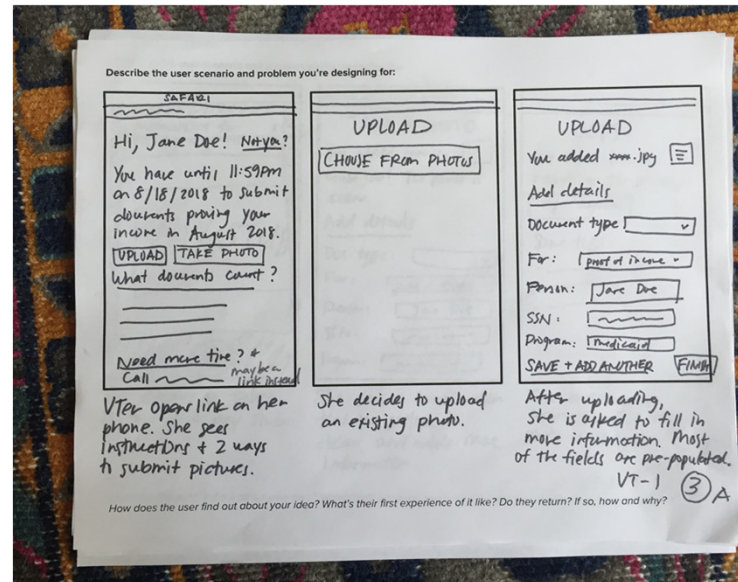 Describe the user scenario and problem you're designing for:
SAFARI
Hi, Jane Doe! Not you?
You have until 11:59pm
on 8/18/2018 to submit
douments proving your
income in August 2018.
UPLOAD TAKE PHOTO
What douments count?
Need more time? *
Call
maybe a
link instead
VTer opens link on her
phone. She sees
instructions + 2 ways
to submit pictures.
UPLOAD
CHOOSE FROM PHOTOS
She decides to upload
an existing photo.
UPLOAD
You added .jpg
Add details
Document type
For: proof of income
Person: Jane Doe
SSN:
Program: medicaid
SAVE + ADD ANOTHER FINISH
After uploading,
she is asked to fill in
more information. Most
of the fields are pre-populated.
VT-1
3 A
How does the user find out about your idea? What's their first experience of it like? Do they return? If so, how and why?